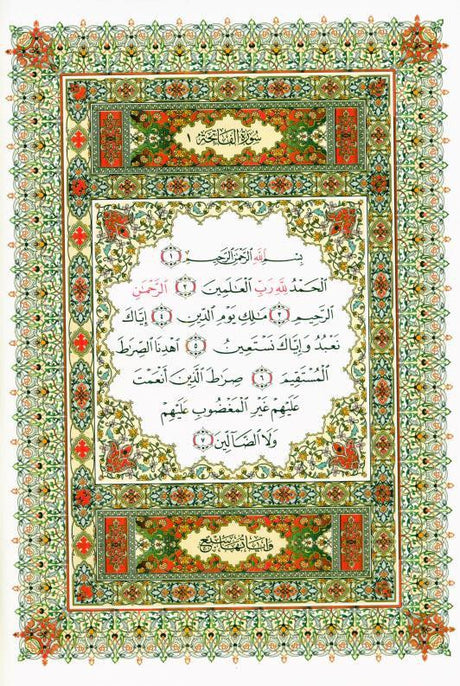 سُورَةُ الفَاتِحَةِ ١
بِسْمِ اللَّهِ الرَّحْمَٰنِ الرَّحِيمِ ١
الْحَمْدُ لِلَّهِ رَبِّ الْعَٰلَمِينَ ٢ الرَّحْمَٰنِ
الرَّحِيمِ ٣ مَٰلِكِ يَوْمِ الدِّينِ ٤ إِيَّاكَ
نَعْبُدُ وَإِيَّاكَ نَسْتَعِينُ ٥ اهْدِنَا الصِّرَٰطَ
الْمُسْتَقِيمَ ٦ صِرَٰطَ الَّذِينَ أَنْعَمْتَ
عَلَيْهِمْ غَيْرِ الْمَغْضُوبِ عَلَيْهِمْ
وَلَا الضَّالِّينَ ٧